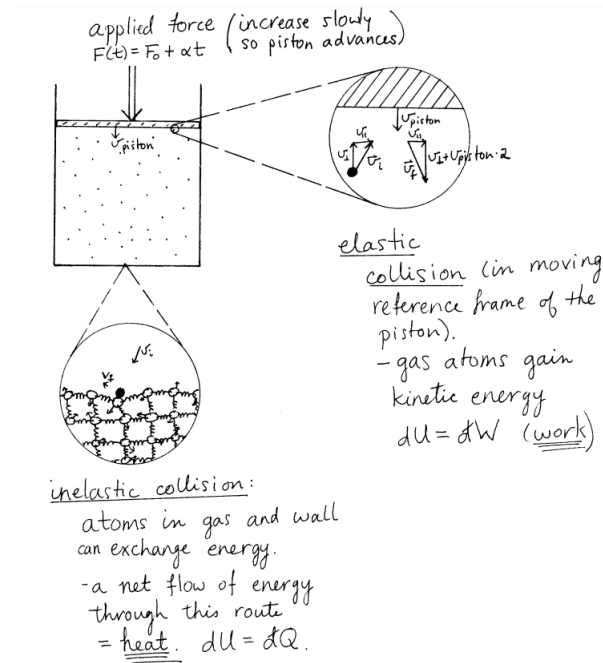 applied force (increase slowly
F(t) = F₀ + αt so piston advances)
v piston
v piston
v⊥ v∥ v⃗i
v∥ v⃗f v⊥ + v piston · 2
elastic
collision (in moving
reference frame of the
piston).
- gas atoms gain
kinetic energy
dU = đW (work)
v⃗i
v⃗f
inelastic collision:
atoms in gas and wall
can exchange energy.
- a net flow of energy
through this route
= heat. dU = đQ.